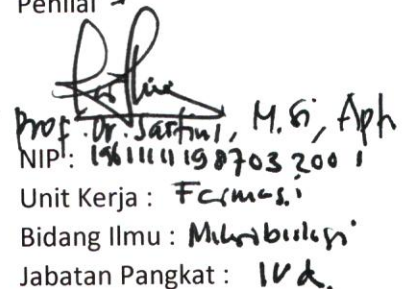 Penilai
Prof. Dr. Sartini, M.Si, Apt
NIP : 19611111 198703 2001
Unit Kerja : Farmasi
Bidang Ilmu : Mikrobiologi
Jabatan Pangkat : IV d